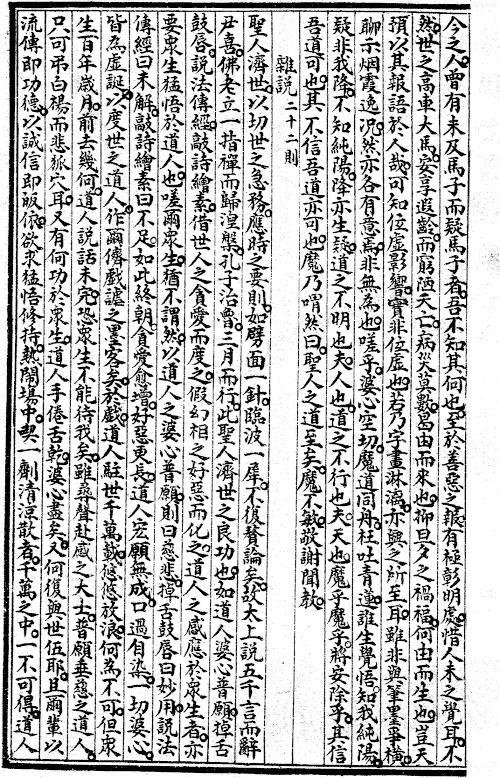 今之人曾有未及馬子而疑馬子者吾不知其何也至於善惡之報有極彰明處惜人未之覺耳不
然世之高車大馬安享遐齡而窮陋夭亡病災莫數曷由而來也抑旦夕之禍福何由而生也豈天
預以其報語於人哉可知位虛影響實非位虛也若乃字畫淋漓亦興之所至耳雖非與筆墨爭橫
聊示烟霞逸況然亦各有意焉非無為也嗟乎婆心空切魔道同舟枉吐青蓮誰生覺悟知我純陽
疑非我降不知純陽降亦生疑道之不明也夫人也道之不行也夫天也魔乎魔乎將安除乎其信
吾道可也其不信吾道亦可也魔乃喟然曰聖人之道至矣魔不敏敬謝聞教
雜說二十二則
聖人濟世以切世之急務應時之要則如劈面一針臨波一犀不復贅論矣故太上說五千言而辭
尹喜佛老立一指禪而歸涅槃孔子治魯三月而行此聖人濟世之良功也如道人婆心普願掉舌
鼓唇說法傳經敲詩繪素借世人之貪愛而度之假幻相之好惡而化之道人之感應於衆生者亦
要衆生猛悟於道人也嗟爾衆生猶不謂然以道人之婆心普願則曰慈悲掉舌鼓唇曰妙用說法
傳經曰未解敲詩繪素曰不足如此終朝貪愛愈增好惡更長道人宏願無成口過自染一切婆心
皆為虛誕以度世之道人作爾儕戲謔之墨客矣於戲道人駐世千萬載悠悠放浪何為不可但衆
生百年歲月前去幾何道人說話未完恐衆生不能待我矣雖尋聲赴感之大士普願垂慈之道人
只可弔白楊而悲狐穴耳又有何功於衆生道人手倦舌乾婆心盡矣又何復與世伍耶且爾輩以
流傳即功德以誠信即皈依欲求猛悟修持熱鬧場中喫一劑清涼散者千萬之中一不可得道人